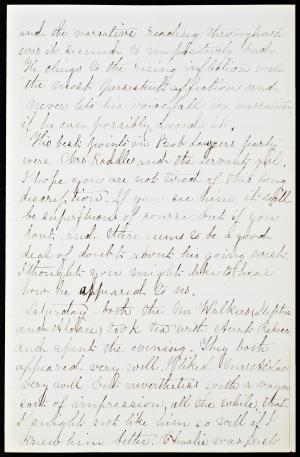 and the narrative reading throughout
was it seemed to me positively bad.
He clings to the rising inflection with
the most persistent affection and
never lets his voice fall in narration
if he can possibly avoid it.
The best points in Bob Sawyers party
were Mrs Raddle, and the servant girl.
I hope you are not tired of this long
description. If you see him it will
be superfluous of course: but if you
dont, and there seems to be a good
deal of doubt about his going west.
I thought you might like to hear
how he appeared to us.
Saturday both the Mr Walkers,
and took tea with Aunt
and spent the evening. They both
appeared very well. I liked
very well but nevertheless with a vague
sort of impression, all the while, that
I might not like him so well if I
knew him better. was just